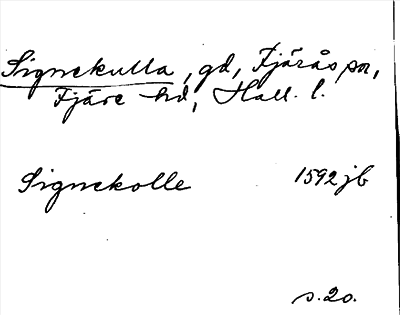 Signekulla, gd, Fjärås sn,
Fjäre hd, Hall. l.
Signekolle 1592 jb
s. 20.